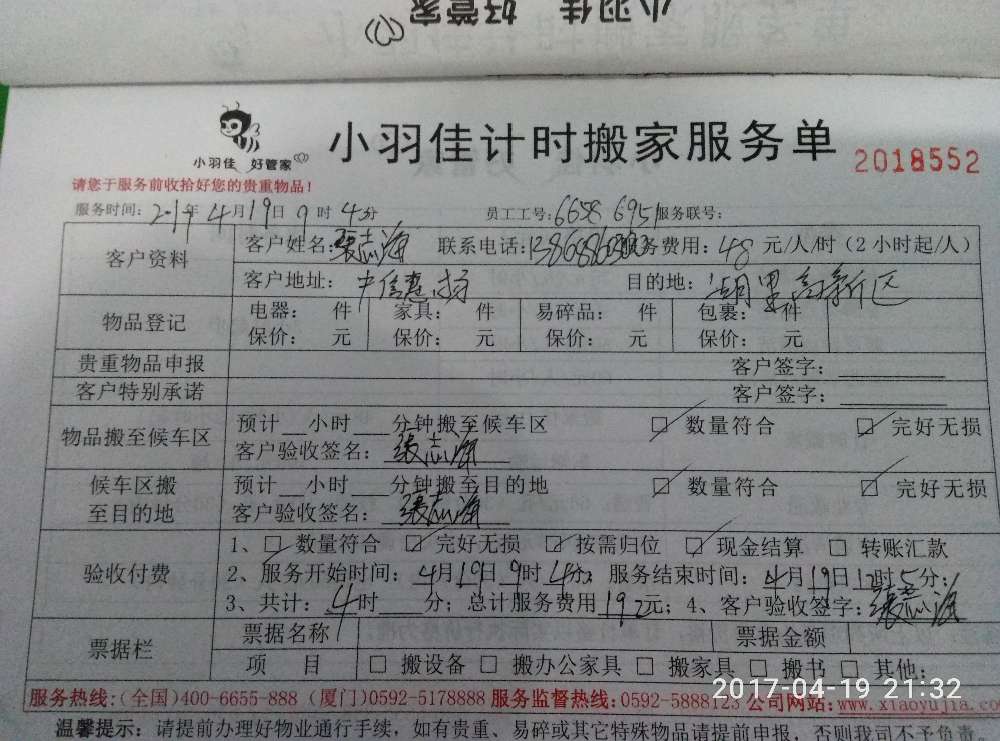 小羽佳 好管家
小羽佳 好管家
小羽佳计时搬家服务单 2018552
请您于服务前收拾好您的贵重物品!
服务时间: 年4月19日9时4分 员工工号:6658 6951 服务联号:
客户资料 客户姓名:张志海 联系电话: 服务费用:48元/人/时(2小时起/人)
客户地址: 中信惠扬 目的地:湖里高新区
物品登记 电器: 件 家具: 件 易碎品: 件 包裹: 件
保价: 元 保价: 元 保价: 元 保价: 元
贵重物品申报 客户签字:
客户特别承诺 客户签字:
物品搬至候车区 预计__小时___分钟搬至候车区 ☑ 数量符合 ☑ 完好无损
客户验收签名: 张志海
候车区搬至目的地 预计__小时___分钟搬至目的地 ☑ 数量符合 ☑ 完好无损
客户验收签名: 张志海
验收付费 1、☑ 数量符合 ☑ 完好无损 ☑ 按需归位 ☑ 现金结算 □ 转账汇款
2、服务开始时间:4月19日9时4分; 服务结束时间:4月19日12时5分;
3、共计:4时___分;总计服务费用192元;4、客户验收签字:张志海
票据栏 票据名称 票据金额
项 目 □ 搬设备 □ 搬办公家具 □ 搬家具 □ 搬书 □ 其他:
服务热线:(全国)400-6655-888 (厦门)0592-5178888 服务监督热线:0592-5888123 公司网站:www.xiaoyujia.co
2017-04-19 21:32
温馨提示: 请提前办理好物业通行手续,如有贵重、易碎或其它特殊物品请提前申报,否则我司不予负责。